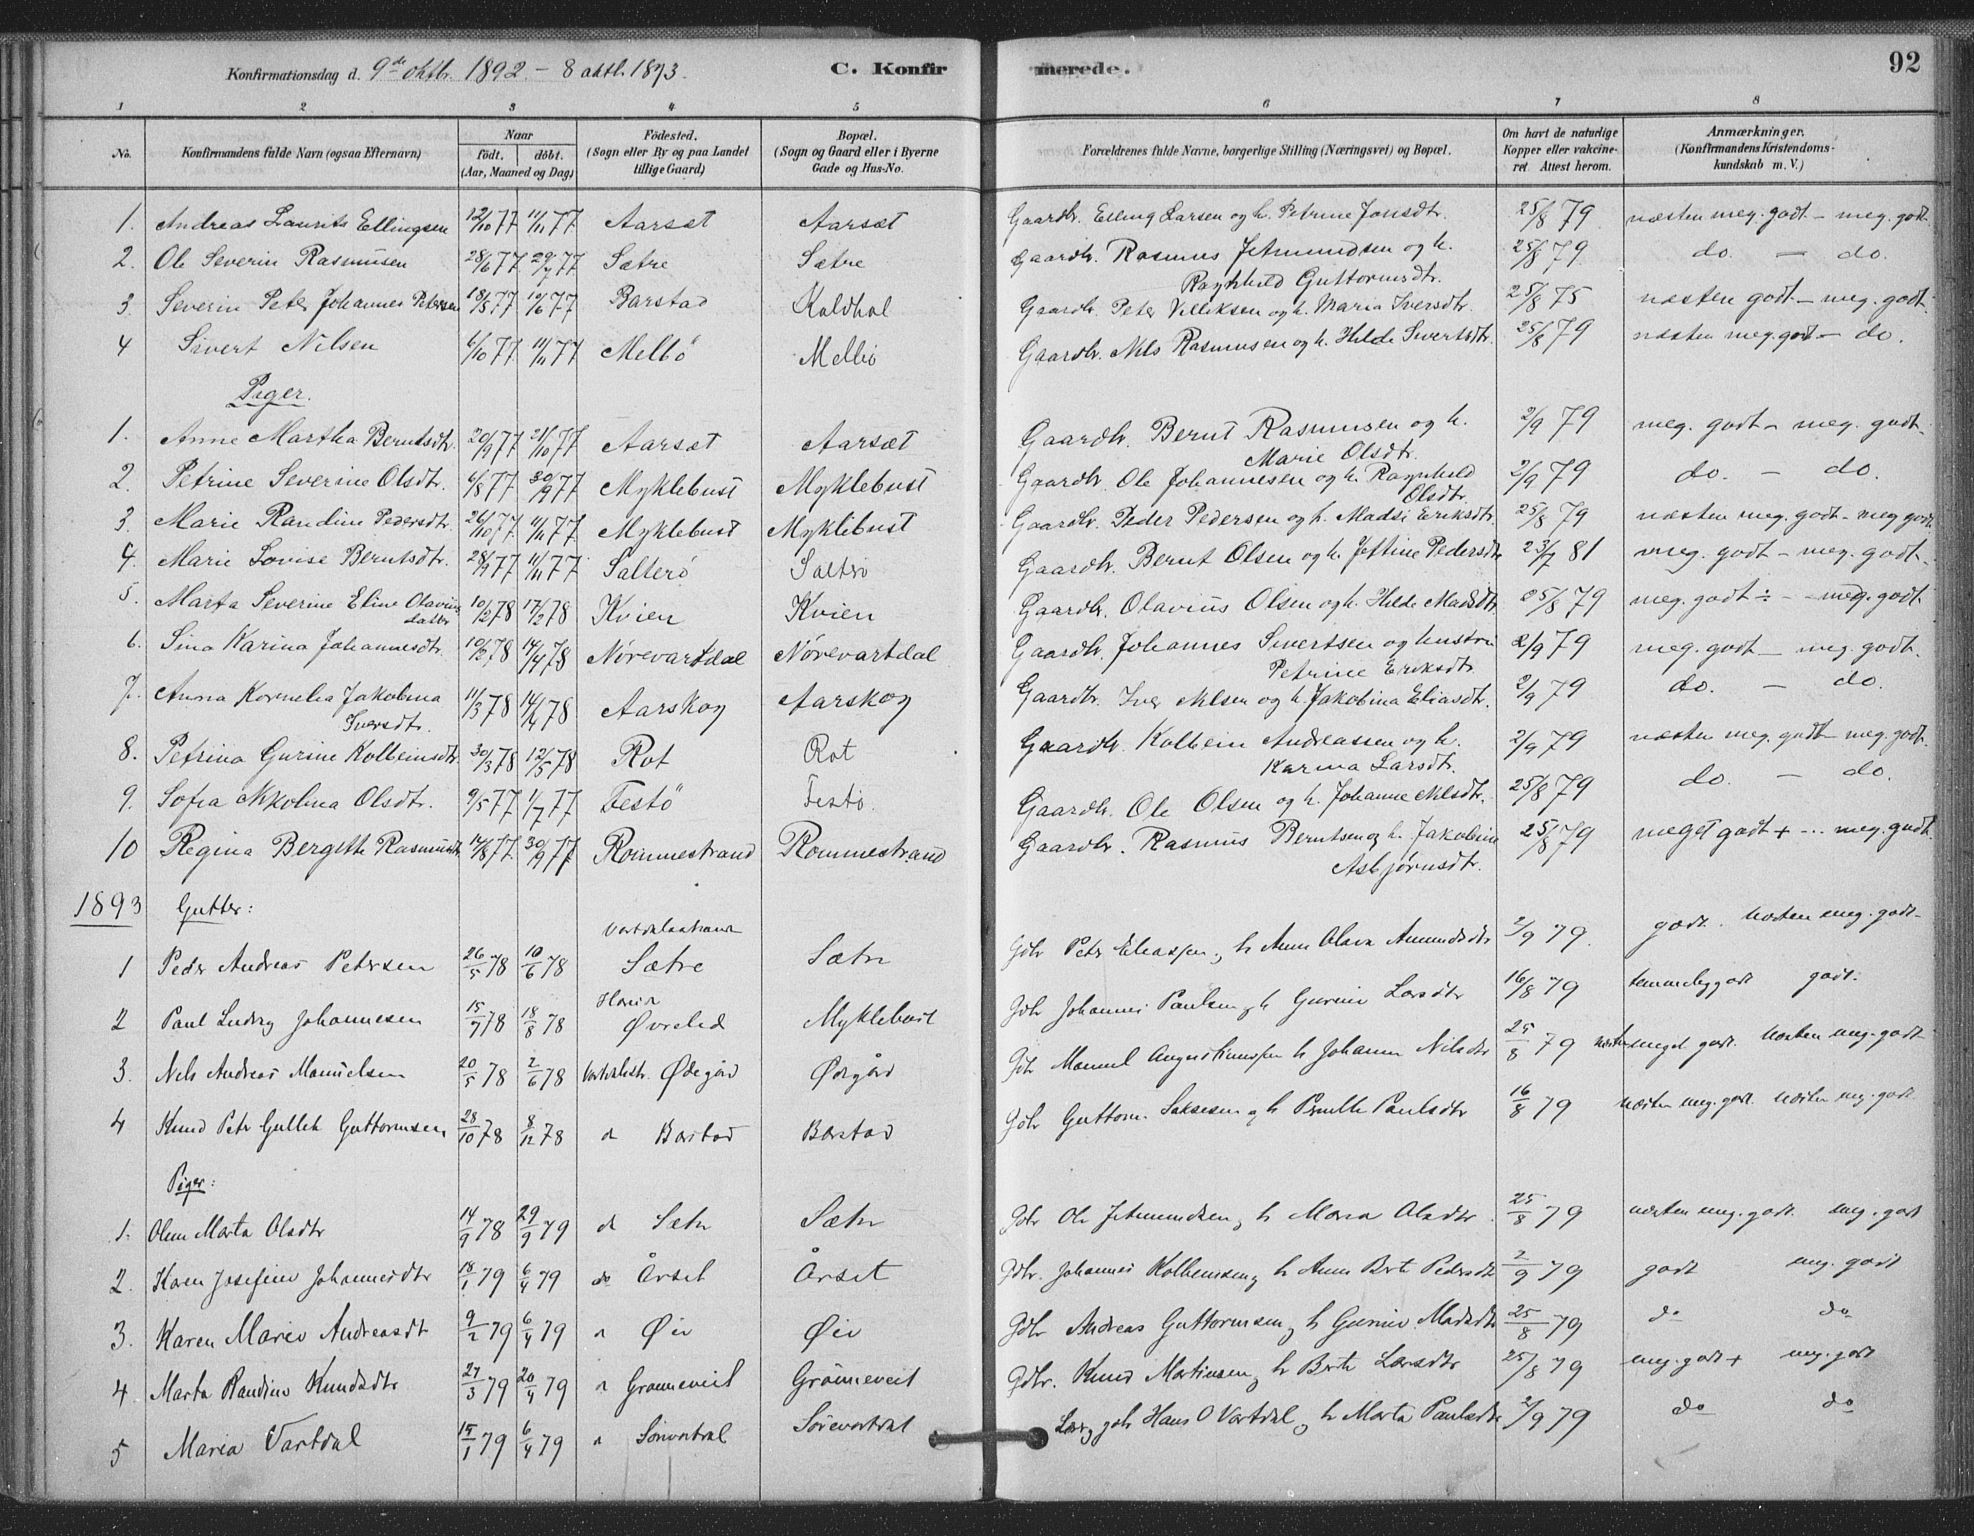 Konfirmationsdag d. 9de oktb. 1892 – 8 oktb. 1893. C. Konfirmerede. 92
1 2 3 4 5 6 7 8
No. Konfirmandens fulde Navn (ogsaa Efternavn) Naar født. døbt. (Aar, Maaned og Dag) Fødested. (Sogn eller By og paa Landet tillige Gaard) Bopæl. (Sogn og Gaard eller i Byerne Gade og Hus-No. Forældrenes fulde Navne, borgerlige Stilling (Næringsvei) og Bopæl. Om havt de naturlige Kopper eller vakcineret. Attest herom. Anmærkninger. (Konfirmandens Kristendomskundskab m. V.)
1. Andreas Laurits Ellingsen 12/10 77 11/11 77 Aarsæt Aarsæt Gaardbr. Elling Larsen og h. Petrine Jonsdtr. 25/8 79 næsten meg. godt – meg. godt.
2. Ole Severin Rasmusen 28/6 77 29/7 77 Sætre Sætre Gaardbr. Rasmus Jetmundsen og h. 25/8 79 do. – do.
Ragnhild Guttormsdtr.
3. Severin Peter Johannes Petersen 18/5 77 10/6 77 Barstad Koldhol Gaardbr. Peter Villiksen og h. Maria Iversdtr. 25/8 75 næsten godt – meg. godt.
4 Sivert Nilsen 6/10 77 11/11 77 Melbö Melbö Gaardbr. Nils Rasmusen og h. Hilde Sivertsdtr. 25/8 79 næsten meg. godt – do.
Piger.
1. Anne Martha Berntsdtr. 20/9 77 21/10 77 Aarsæt Aarsæt Gaardbr. Bernt Rasmusen og h. 2/9 79 meg. godt – meg. godt.
Marie Olsdtr.
2. Petrine Severine Olsdtr. 6/8 77 30/9 77 Myklebust Myklebust Gaardbr. Ole Johannesen og h. Ragnhild 2/9 79 do. – do.
Olsdtr.
3. Marie Randine Pedersdtr. 26/10 77 11/11 77 Myklebust Myklebust Gaardbr. Peder Pedersen og h. Madsi Eriksdtr. 25/8 79 næsten meg. godt – meg godt
4. Marie Lovise Berntsdtr. 28/9 77 11/11 77 Salterö Salterö Gaardbr. Bernt Olsen og h. Jettine Pedersdtr 23/7 81 meg. godt – meg. godt.
5. Marta Severine Eline Olavius 10/1 78 17/2 78 Kvien Kvien Gaardbr. Olavius Olsen og h. Hilde Madsdtr 25/8 79 meg. godt ÷ – meg. godt.
datter
6. Sina Karina Johannesdtr. 10/3 78 14/4 78 Nörevartdal Nörevartdal Gaardbr. Johannes Sivertsen og hustru 2/9 79 meg. godt – meg. godt.
Petrine Eriksdtr.
7. Anna Kornelia Jakobina 11/3 78 14/4 78 Aarskog Aarskog Gaardbr. Iver Nilsen og h. Jakobina Eliasdtr. 2/9 79 do. – do.
Iversdtr.
8. Petrina Gurine Kolbeinsdtr. 30/3 78 12/5 78 Rot Rot Gaardbr. Kolbein Andreassen og h. 2/9 79 næsten meg. godt – meg. godt.
Karina Larsdtr.
9. Sofia Nikolina Olsdtr. 9/5 77 1/7 77 Festö Festö. Gaardbr. Ole Olsen og h. Johanne Nilsdtr. 25/8 79 do. – do.
10 Regina Bergitte Rasmusdtr 14/8 77 30/9 77 Rommestrand Rommestrand Gaardbr. Rasmus Berntsen og h. Jakobine 25/8 79 meget godt + – meg. godt.
Asbjørnsdtr.
1893 Gutter:
Vartdalsstrand
1 Peder Andreas Petersen 26/5 78 10/6 78 Sætre Sætre Gdbr Peter Eliassen, h Anne Olava Amundsdtr 2/9 79. godt. næsten meg. godt.
Hareid
2 Paul Ludvig Johannesen 15/7 78 18/8 78 Øvrelid Myklebust Gdbr Johannes Paulsen og h Gurine Larsdtr 16/8 79 temmelig godt godt.
3. Nils Andreas Manuelsen 20/5 78 2/6 78 Vartdalsstr. Ødegård Ødegård Gbr Manuel Augustinussen h Johanne Nilsdtr 25/8 79 næsten meget godt. næsten meg. godt.
4 Knud Petr Gullik Guttormsen 28/10 78 8/12 78 " Barstad Barstad Gdbr Guttorm Saksesen og h Pernille Paulsdtr 16/8 79 næsten meg. godt. næsten meg. godt.
Piger:
1. Oline Marta Olsdtr 14/9 78 29/9 79 do Sætre Sætre Gdbr Ole Jetmundsen, h Maria Olsdtr 25/8 79 næsten meg. godt. meg. godt
2. Karen Josefine Johannesdtr 18/1 79 6/4 79 do Årset Årset Gdbr. Johannes Kolbeinsen, h Anne Berte Pedersdtr 2/9 79 godt meg. godt
3. Karen Marie Andreasdt 9/2 79 6/4 79 " Øie Øie Gdbr Andreas Guttormsen, h Gurine Madsdtr 25/8 79 do do
4 Marta Randine Knudsdtr 27/3 79 20/4 79 " Grønneveit Grønneveit Gdbr. Knud Martinsen, h Berte Larsdtr 25/8 79 meg. godt + meg. godt
5 Maria Vartdal 15/1 79 6/4 79 " Sørevartdal Sørevartdal Lær. gdbr Hans O Vartdal, h Marta Paulsdtr 2/9 79 do do